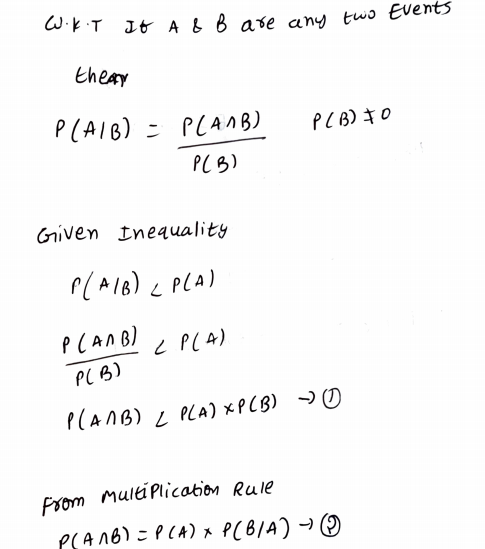 W.K.T If A & B are any two Events
then
P(A/B) = P(A∩B) / P(B) P(B) ≠ 0
Given Inequality
P(A/B) < P(A)
P(A∩B) / P(B) < P(A)
P(A∩B) < P(A) × P(B) → ①
From Multiplication Rule
P(A∩B) = P(A) × P(B/A) → ②